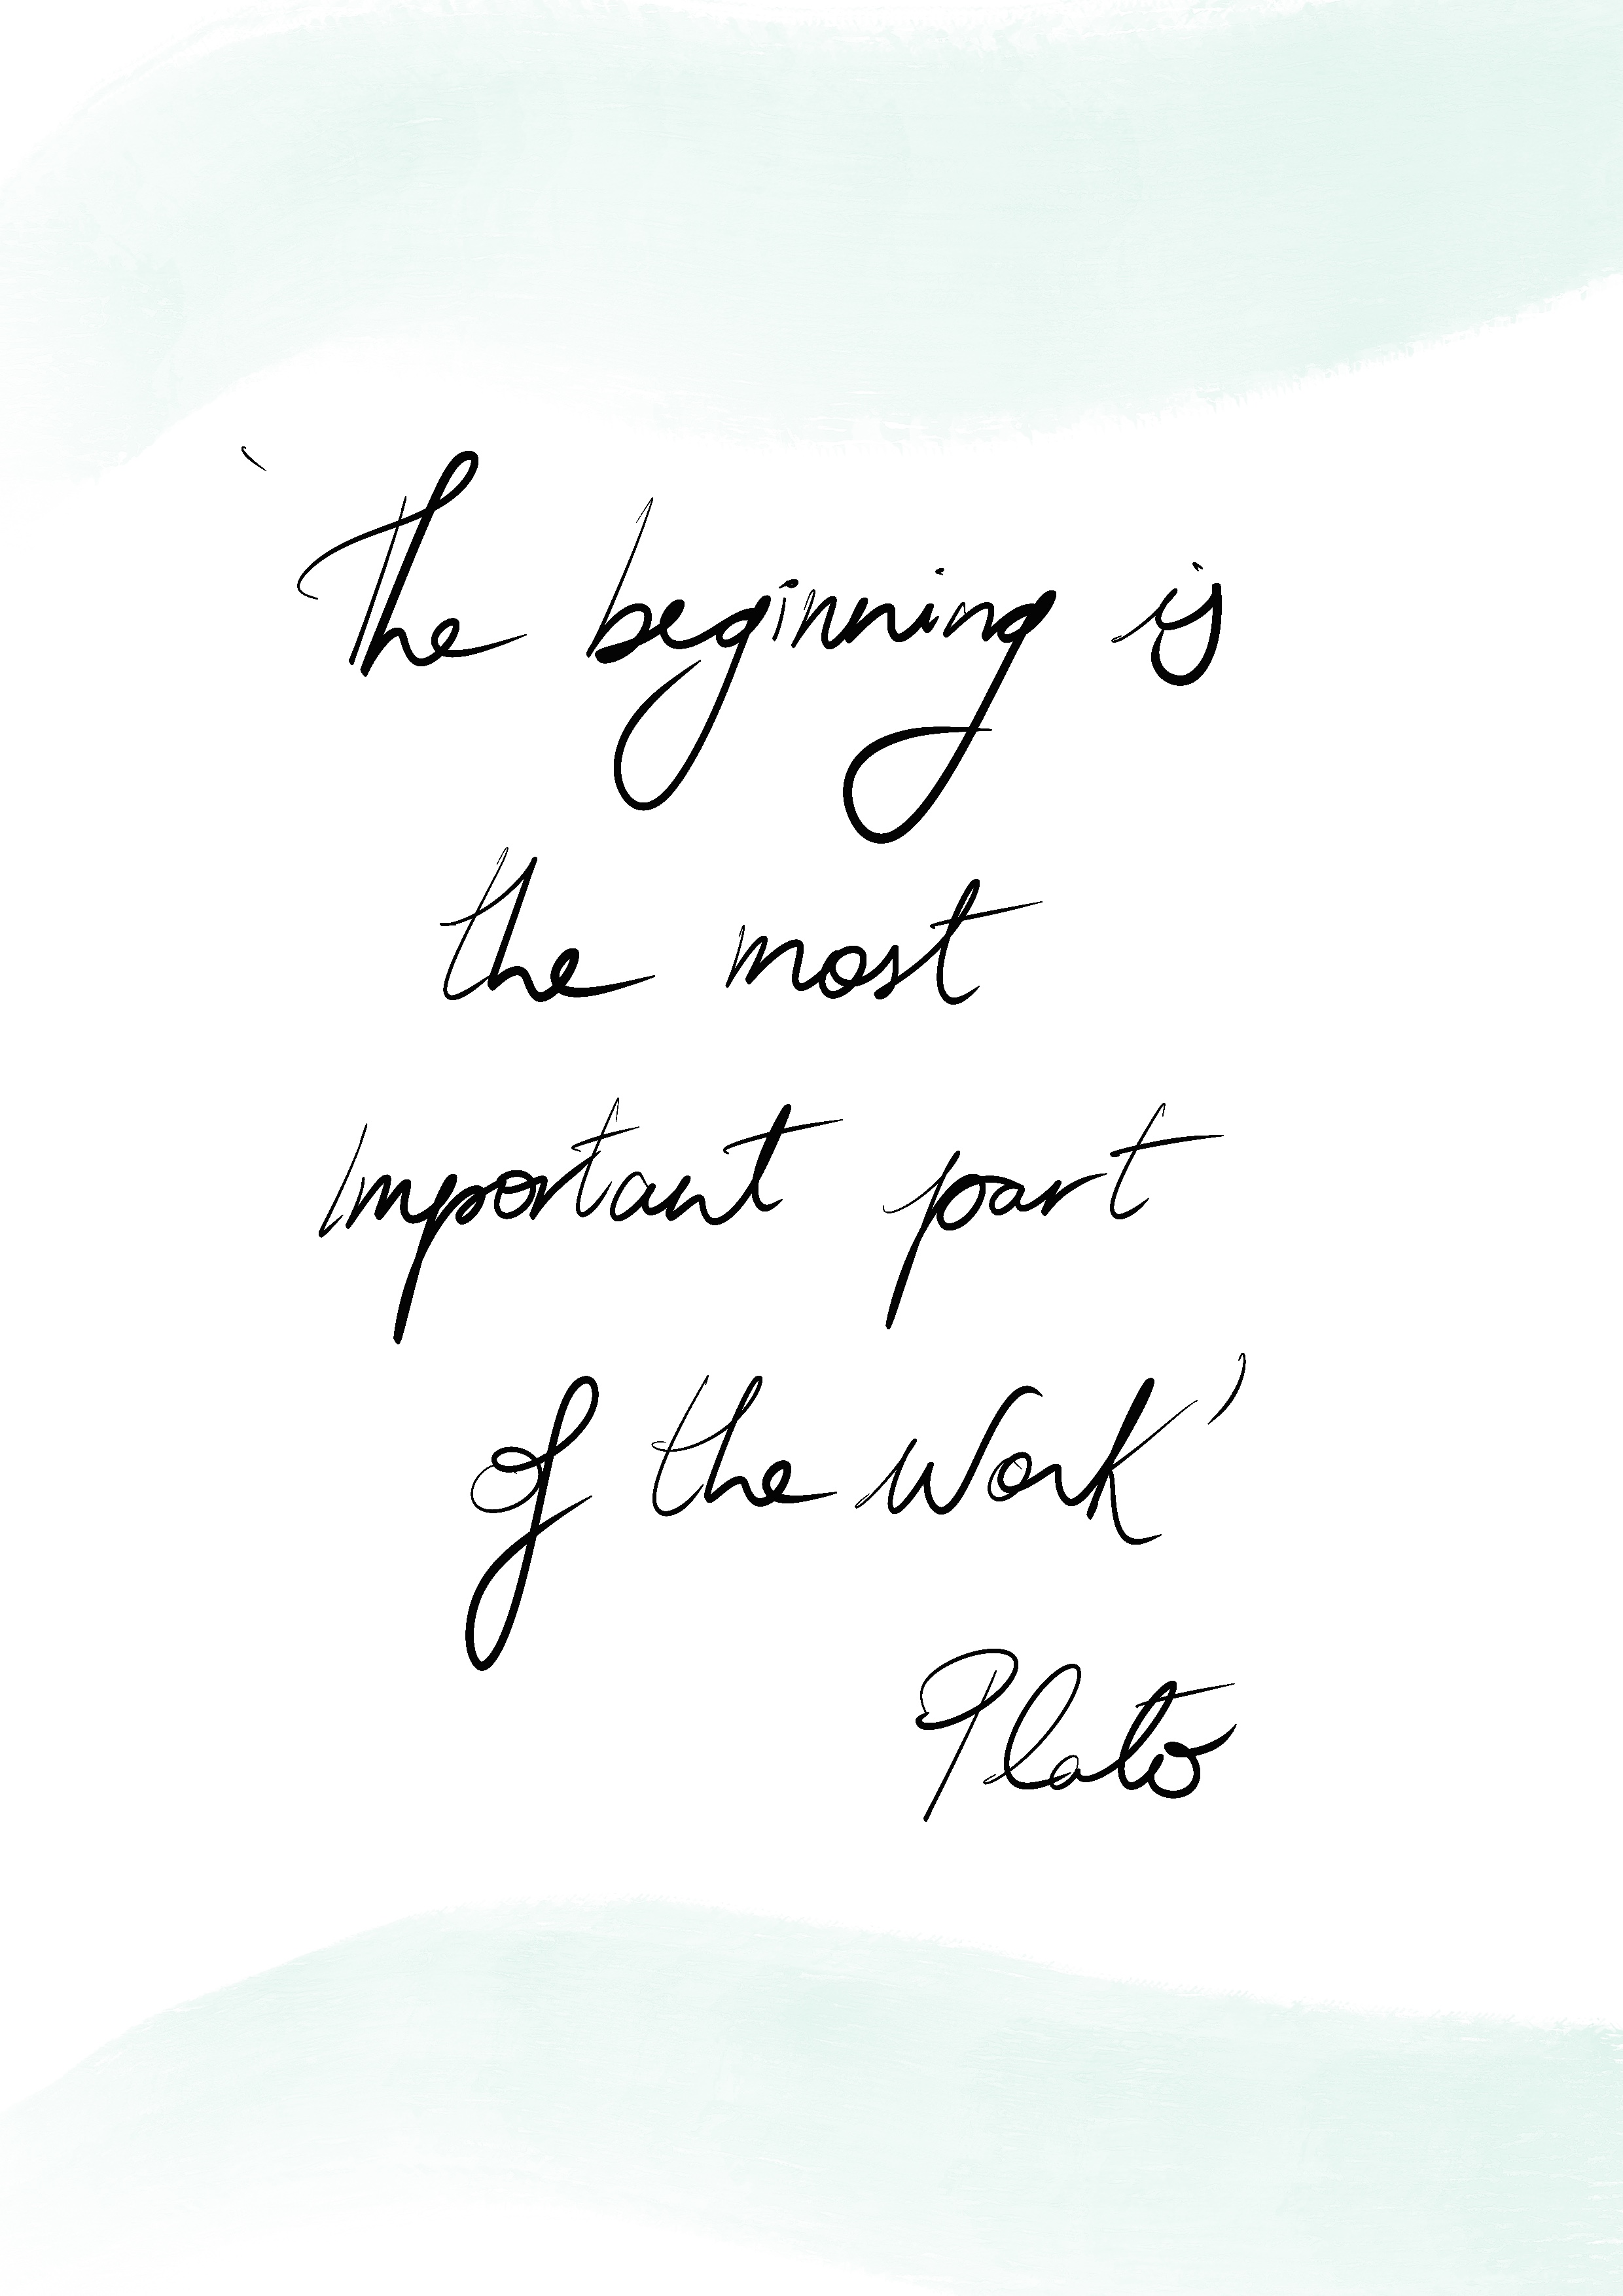 ‘The beginning is
the most
Important part
of the work’
Plato